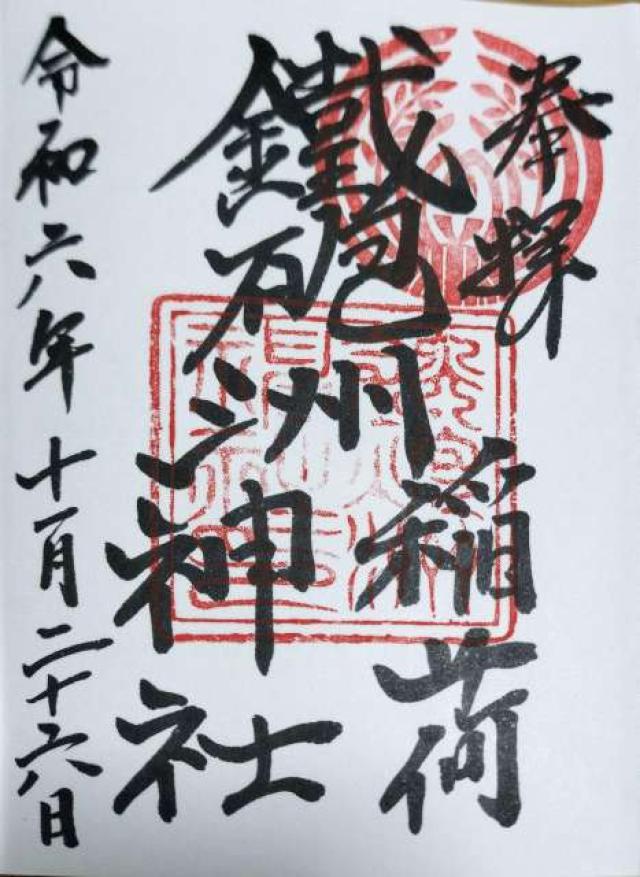 奉拝
鐵砲洲
稲荷
神社
令和六年十一月二十六日